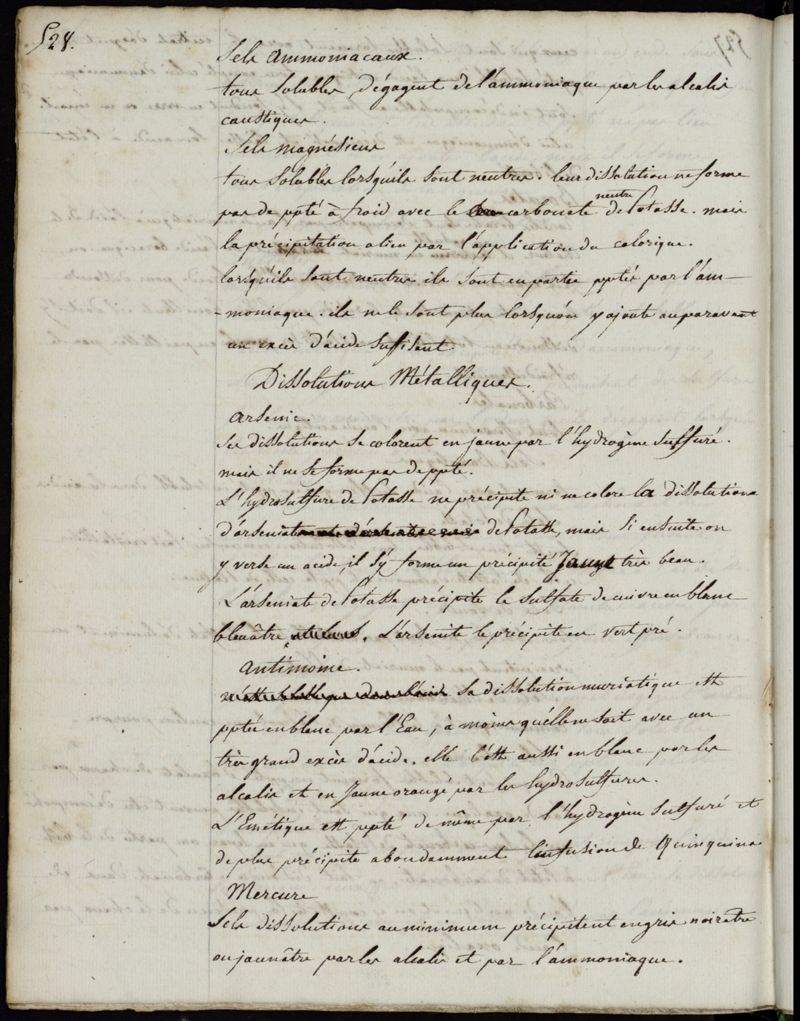 528.
Sels ammoniacaux.
tous solubles, dégagent de l'ammoniaque par les alcalis
caustiques.
Sels magnésiens
tous solubles lorsqu'ils sont neutres. leur dissolution ne forme
pas de ppté à froid avec le carbonate neutre de Potasse. mais
la précipitation a lieu par l'application du calorique.
lorsqu'ils sont neutres ils sont en partie pptés par l'am-
-moniaque. ils ne le sont plus lorsqu'on y ajoute auparavant
un excès d'acide suffisant.
Dissolutions Métalliques.
arsenic.
Ses dissolutions se colorent en jaune par l'hydrogène sulfuré.
mais il ne se forme pas de ppté.
L'hydrosulfure de Potasse ne précipite ni ne colore la dissolution
d'arseniate de Potasse, mais si ensuite on
y verse un acide, il s'y forme un précipité Jaune très beau.
L'arseniate de Potasse précipite le sulfate de cuivre en blanc
bleuâtre. L'arsenite le précipite en vert pré.
antimoine.
sa dissolution muriatique est
pptée en blanc par l'Eau, à moins qu'elle ne soit avec un
très grand excès d'acide. elle l'est aussi en blanc par les
alcalis et en Jaune orangé par les hydrosulfures.
L'Emétique est ppté de même par l'hydrogène sulfuré et
de plus précipite abondamment l'infusion de Quinquina
Mercure
Sels dissolutions au minimum précipitent en gris noirâtre
ou jaunâtre par les alcalis et par l'ammoniaque.